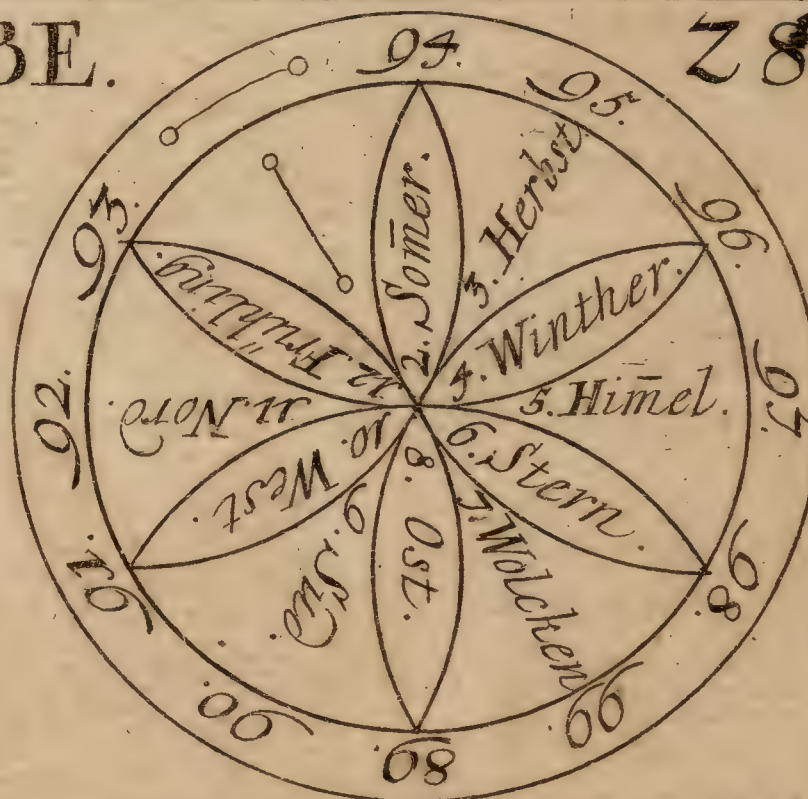 BE.
28
94.
95.
96.
97.
98.
99
89
90.
91.
92.
93.
2. Som̄er.
3. Herbst.
4. Winther.
5. Him̄el.
6. Stern.
7. Wolcken
8. Ost.
9. Süd.
10. West.
11. Nord
12. Frühling.